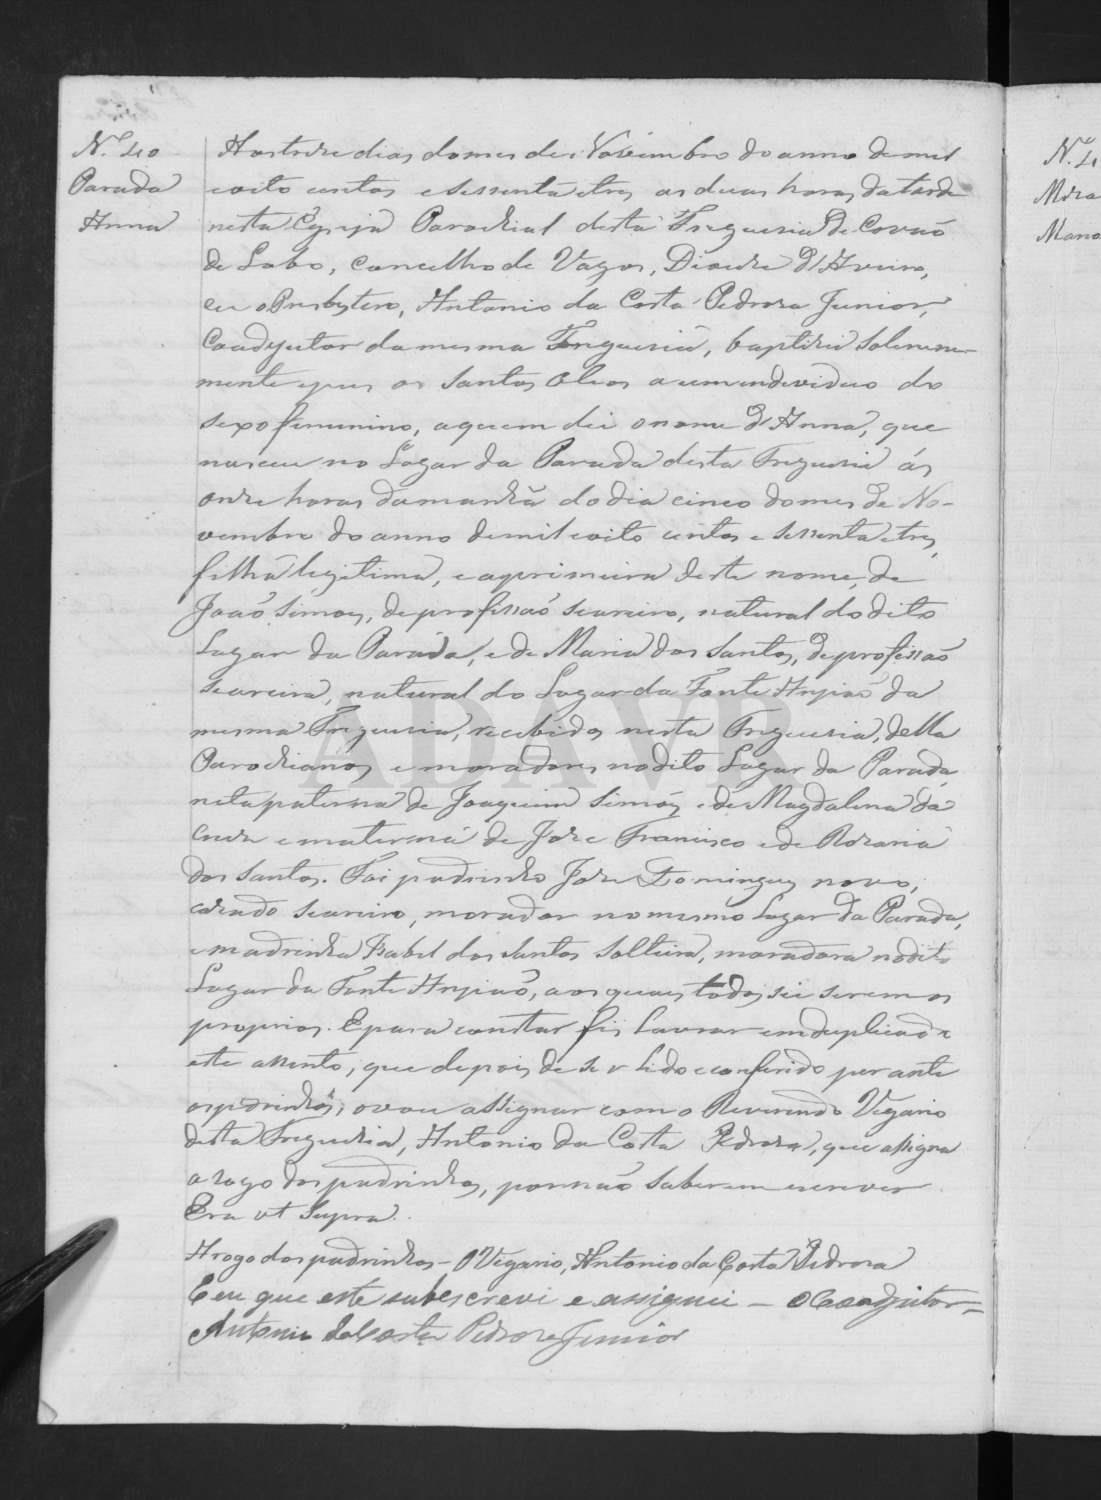 N.º 40
Parada
Anna
Aos treze dias do mes de Novembro do anno de mil
e oito centos e sessenta e tres, as duas horas da tarde
nesta Egreja Parochial desta Freguesia de Covaõ
de Lobo, Concelho de Vagos, Diocese d'Aveiro,
eu o Presbytero, Antonio da Costa Pedrosa Junior,
Coadjutor da mesma Freguesia, baptizei Solemne-
mente e pus os Santos Oleos a um individuo do
sexo femenino, a quem dei o nome d'Anna, que
nasceu no Lugar da Parada desta Freguesia ás
onze horas da manhã do dia cinco do mes de No-
vembro do anno de mil e oito centos e sessenta e tres,
filha legitima, e a primeira deste nome, de
Joaõ Simoes, de profissaõ seareiro, natural do dito
Lugar da Parada, e de Maria dos Santos, de profissaõ
seareira, natural do Lugar da Fonte Anjiaõ da
mesma Freguesia, recebidos nesta Freguesia, della
Parochianos e moradores no dito Lugar da Parada,
neta paterna de Joaquim Simões e de Magdalena da
Cruz e materna de Joze Francisco e de Rozaria
dos Santos. Foi padrinho Joze Domingues novo,
cazado seareiro, morador no mesmo Lugar da Parada,
e madrinha Izabel dos Santos Solteira, moradora no dito
Lugar da Fonte Anjiaõ, aos quaes todos sei serem os
proprios. E para constar fis Lavrar em duplicado
este assento, que depois de ser Lido e conferido perante
os padrinhos, o vou assignar com o Reverendo Vigario
desta Freguesia, Antonio da Costa Pedrosa, que assigna
a rogo dos padrinhos, por naõ saberem escrever.
Era ut Supra.
A rogo dos padrinhos - O Vigario, Antonio da Costa Pedrosa
E eu que este subescrevi e assignei - O Coadjutor =
Antonio da Costa Pedrosa Junior
ADAVR